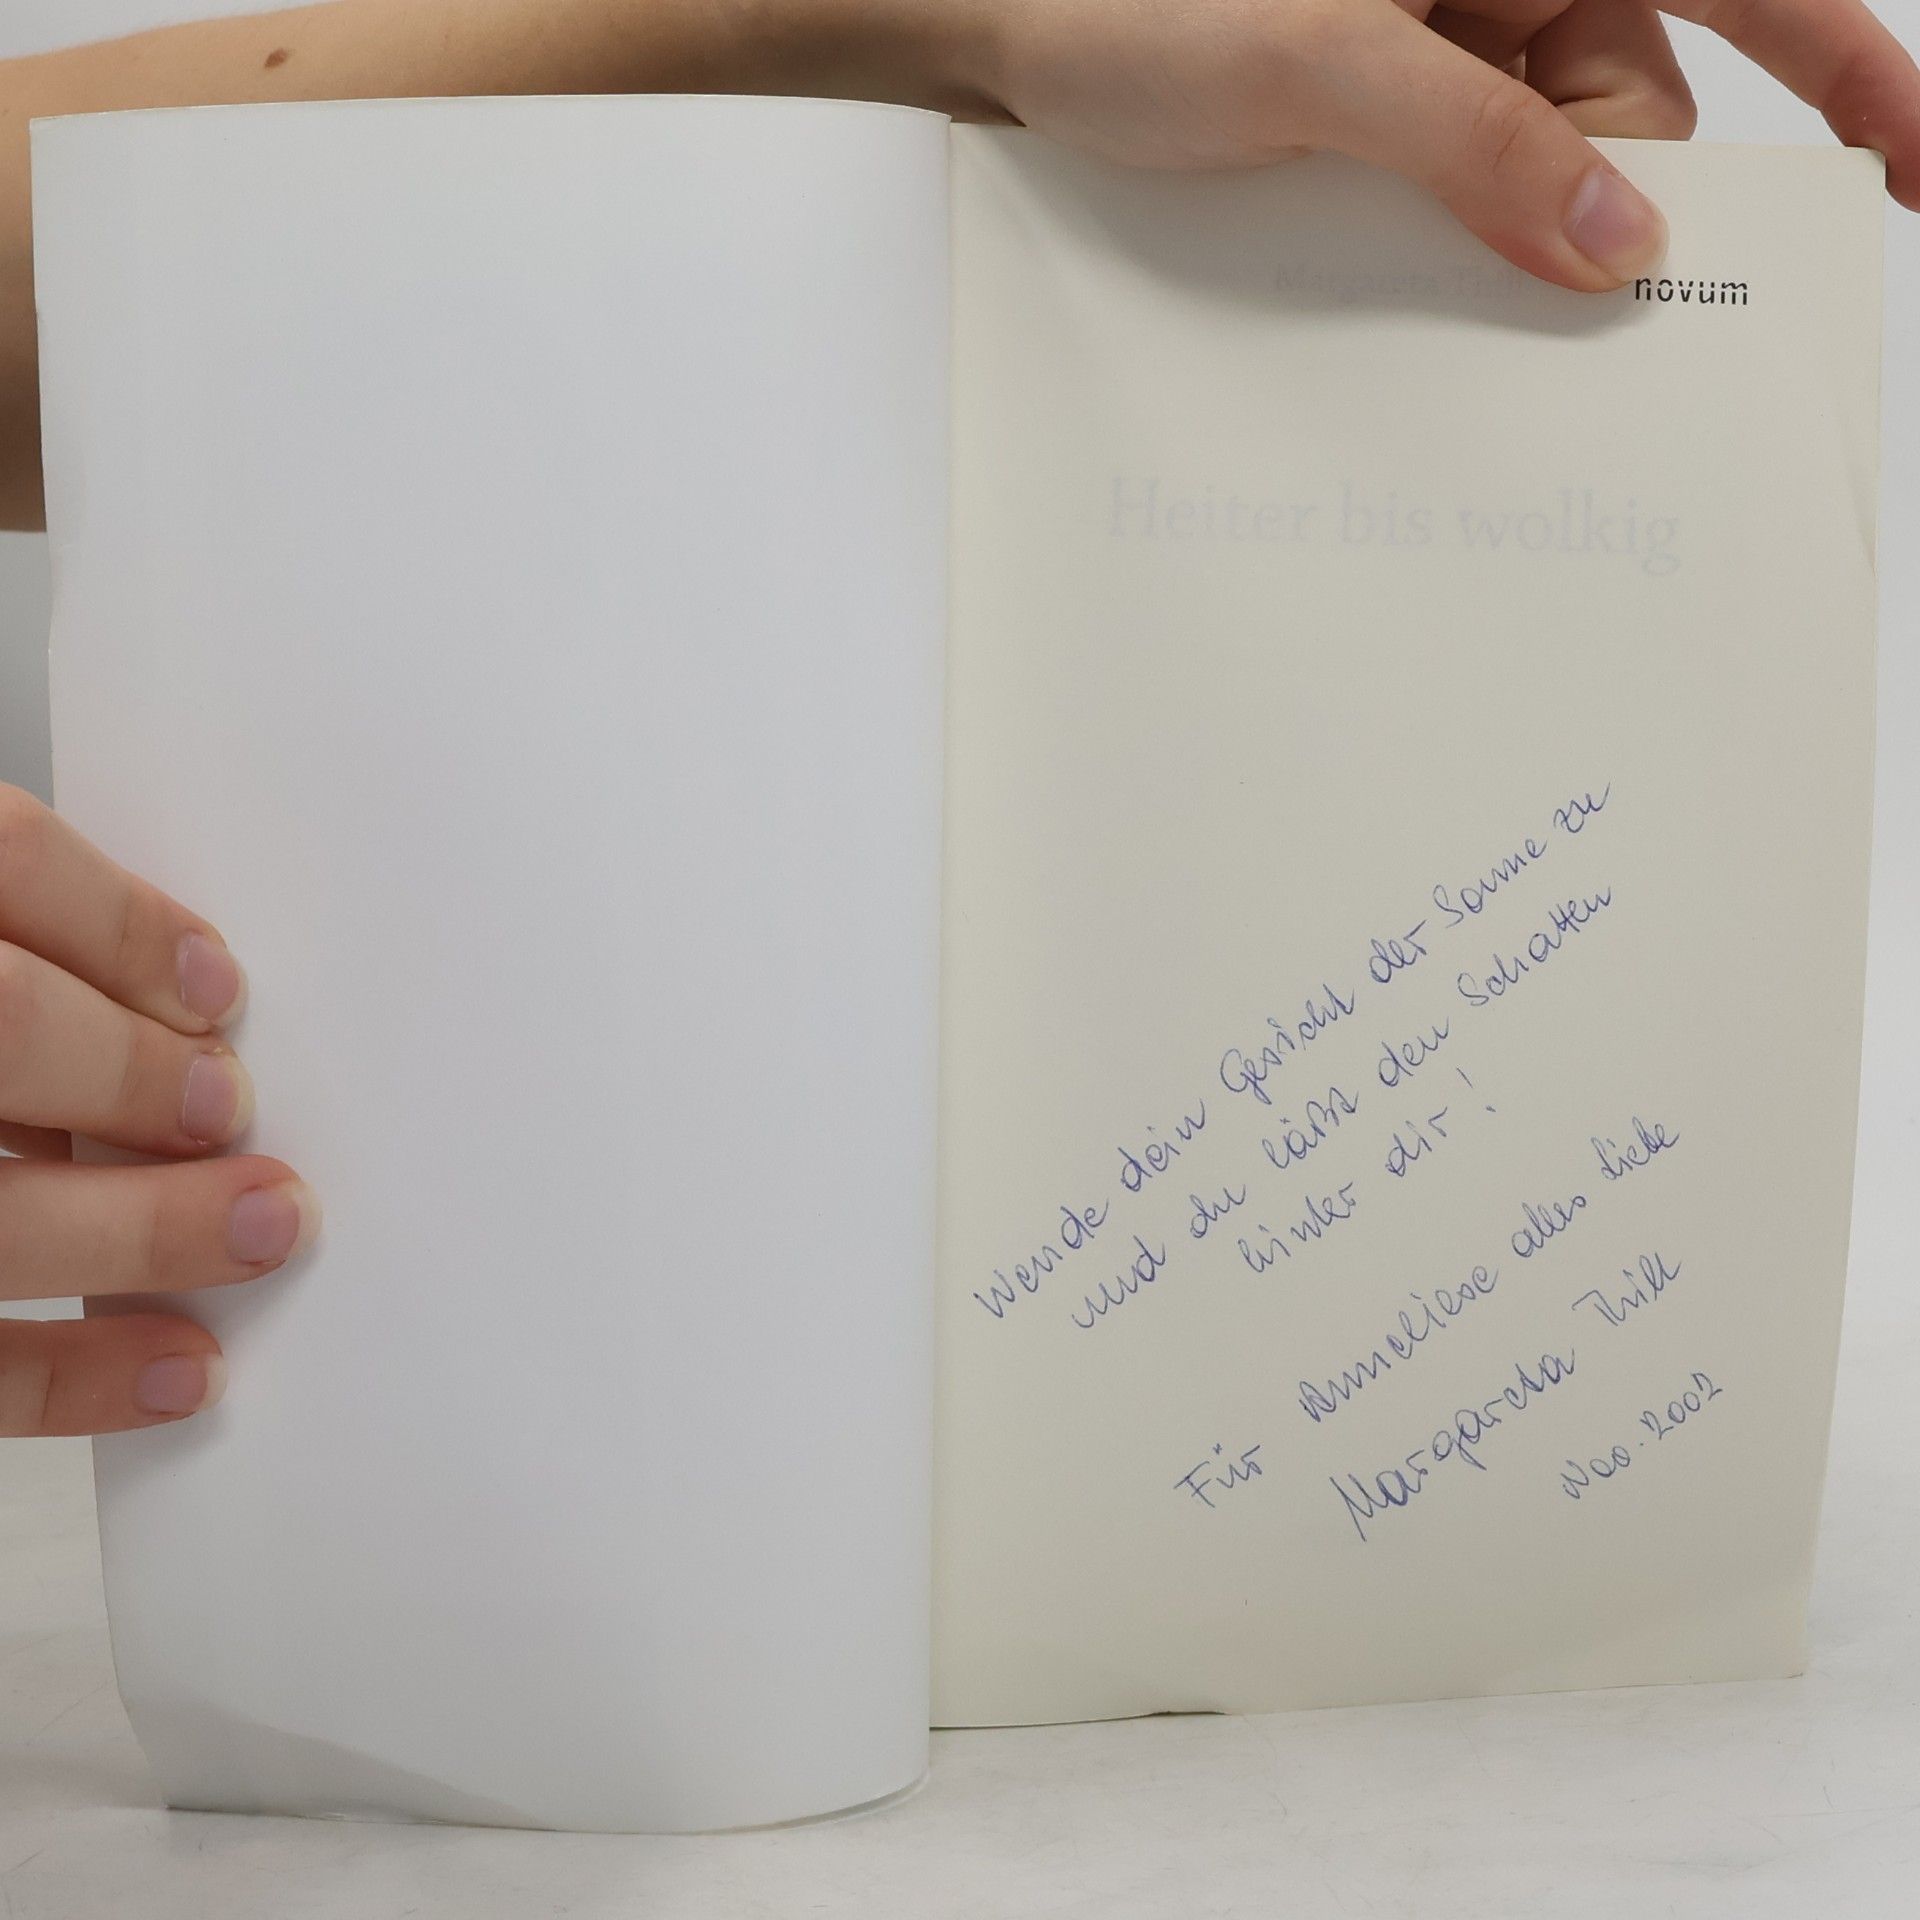 novum
Margareta Thill
Heiter bis wolkig
Wende dein Gesicht der Sonne zu
und du läßt den Schatten
hinter dir!
Für Anneliese alles Liebe
Margareta Thill
Nov. 2002